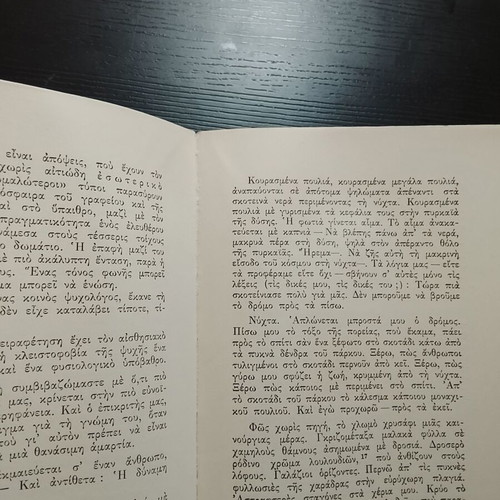 εἶναι ἀπόψεις, ποὺ ἔχουν τὸν
χωρὶς αἰτιώδη ἐσωτερικὸ
μαλώτεροι» τύποι παρασύρουν
όσφαιρα τοῦ γραφείου καὶ τῆς
καὶ στὸ ὕπαιθρο, μαζὶ μὲ τὸν
πραγματικότητα ἑνὸς ἐλευθέρου
νάμεσα στοὺς τέσσερις τοίχους
ο δωμάτιο. Ἡ ἐπαφὴ μαζί του
μὲ πιὸ ἀκάλυπτη ἔνταση, παρὰ ἡ
υς. Ἕνας τόνος φωνῆς μπορεῖ
μα μπορεῖ νὰ ἑνώση.
νας κοινὸς ψυχολόγος, ἔκανε τὴ
δὲν εἶχε καταλάβει τίποτε, τί-
ειραφέτηση ἔχει τὸν αἰσθησιακὸ
ἡ κλειστοφοβία τῆς ψυχῆς ἕνα
κι ἕνα φυσιολογικὸ ὑπόβαθρο.
συμβιβαζώμαστε μὲ ὅ,τι πιὸ
μας, κρίνεται στὴν πιὸ εὐνοϊ-
ρηφάνεια. Καὶ ὁ ἐπικριτής μας,
ιγμα γιὰ τὴ γνώμη του, ὅταν
οῦ γι' αὐτὸν πρέπει νὰ εἶναι
μιὰ θανάσιμη ἁμαρτία.
ἐκμαιεύεται σ' ἕναν ἄνθρωπο,
— Καὶ ἀντίθετα : Ἡ δύναμη
Κουρασμένα πουλιά, κουρασμένα μεγάλα πουλιά,
ἀναπαύονται σὲ ἀπότομα ψηλώματα ἀπέναντι στὰ
σκοτεινὰ νερὰ περιμένοντας τὴ νύχτα. Κουρασμένα
πουλιὰ μὲ γυρισμένα τὰ κεφάλια τους στὴν πυρκαϊὰ
τῆς δύσης. Ἡ φωτιὰ γίνεται αἷμα. Τὸ αἷμα ἀνακα-
τεύεται μὲ καπνιὰ — Νὰ βλέπης πάνω ἀπ' τὰ νερά,
μακρυὰ πέρα στὴ δύση, ψηλὰ στὸν ἀπέραντο θόλο
τῆς πυρκαϊᾶς. Ἤρεμα—. Νὰ ζῆς αὐτὴ τὴ μακρινὴ
εἴσοδο τοῦ κόσμου στὴ νύχτα—. Τὰ λόγια μας — εἴτε
τὰ προφέραμε εἴτε ὄχι — σβήνουν σ' αὐτὲς μόνο τὶς
λέξεις (τὶς δικές μας, τὶς δικές του ;) : Τώρα πιὰ
σκοτείνιασε πολὺ γιὰ μᾶς. Δὲν μποροῦμε νὰ βροῦμε
τὸ δρόμο πρὸς τὰ πίσω.
Νύχτα. Ἁπλώνεται μπροστά μου ὁ δρόμος.
Πίσω μου τὸ τόξο τῆς πορείας, ποὺ ἔκαμα, πάει
πρὸς τὸ σπίτι σὰν ἕνα ξέφωτο στὸ σκοτάδι κάτω ἀπὸ
τὰ πυκνὰ δένδρα τοῦ πάρκου. Ξέρω, πὼς ἄνθρωποι
τυλιγμένοι στὸ σκοτάδι περνοῦν ἀπὸ κεῖ. Ξέρω, πὼς
γύρω μου σφύζει ἡ ζωή, κρυμμένη ἀπὸ τὴ νύχτα.
Ξέρω πὼς κάποιος μὲ περιμένει στὸ σπίτι. Ἀπ'
τὸ σκοτάδι τοῦ πάρκου τὸ κάλεσμα κάποιου μοναχι-
κοῦ πουλιοῦ. Καὶ ἐγὼ προχωρῶ — πρὸς τὰ ἐκεῖ.
Φῶς χωρὶς πηγή, τὸ χλωμὸ χρυσάφι μιᾶς και-
νούργιας μέρας. Γκριζομέταξα μαλακὰ φύλλα σὲ
χαμηλοὺς θάμνους ἀσημωμένα μὲ δροσιά. Δροσερὸ
ρόδινο χρῶμα λουλουδιῶν, ποὺ ἀνθίζουν στοὺς
λόφους. Γαλάζιοι ὁρίζοντες. Περνῶ ἀπ' τὶς πυκνὲς
φυλλωσιὲς τῆς χαράδρας στὴν εὐρύχωρη πλαγιά.
σταγόνες στὰ χέρια μου. Κρύο τὸ